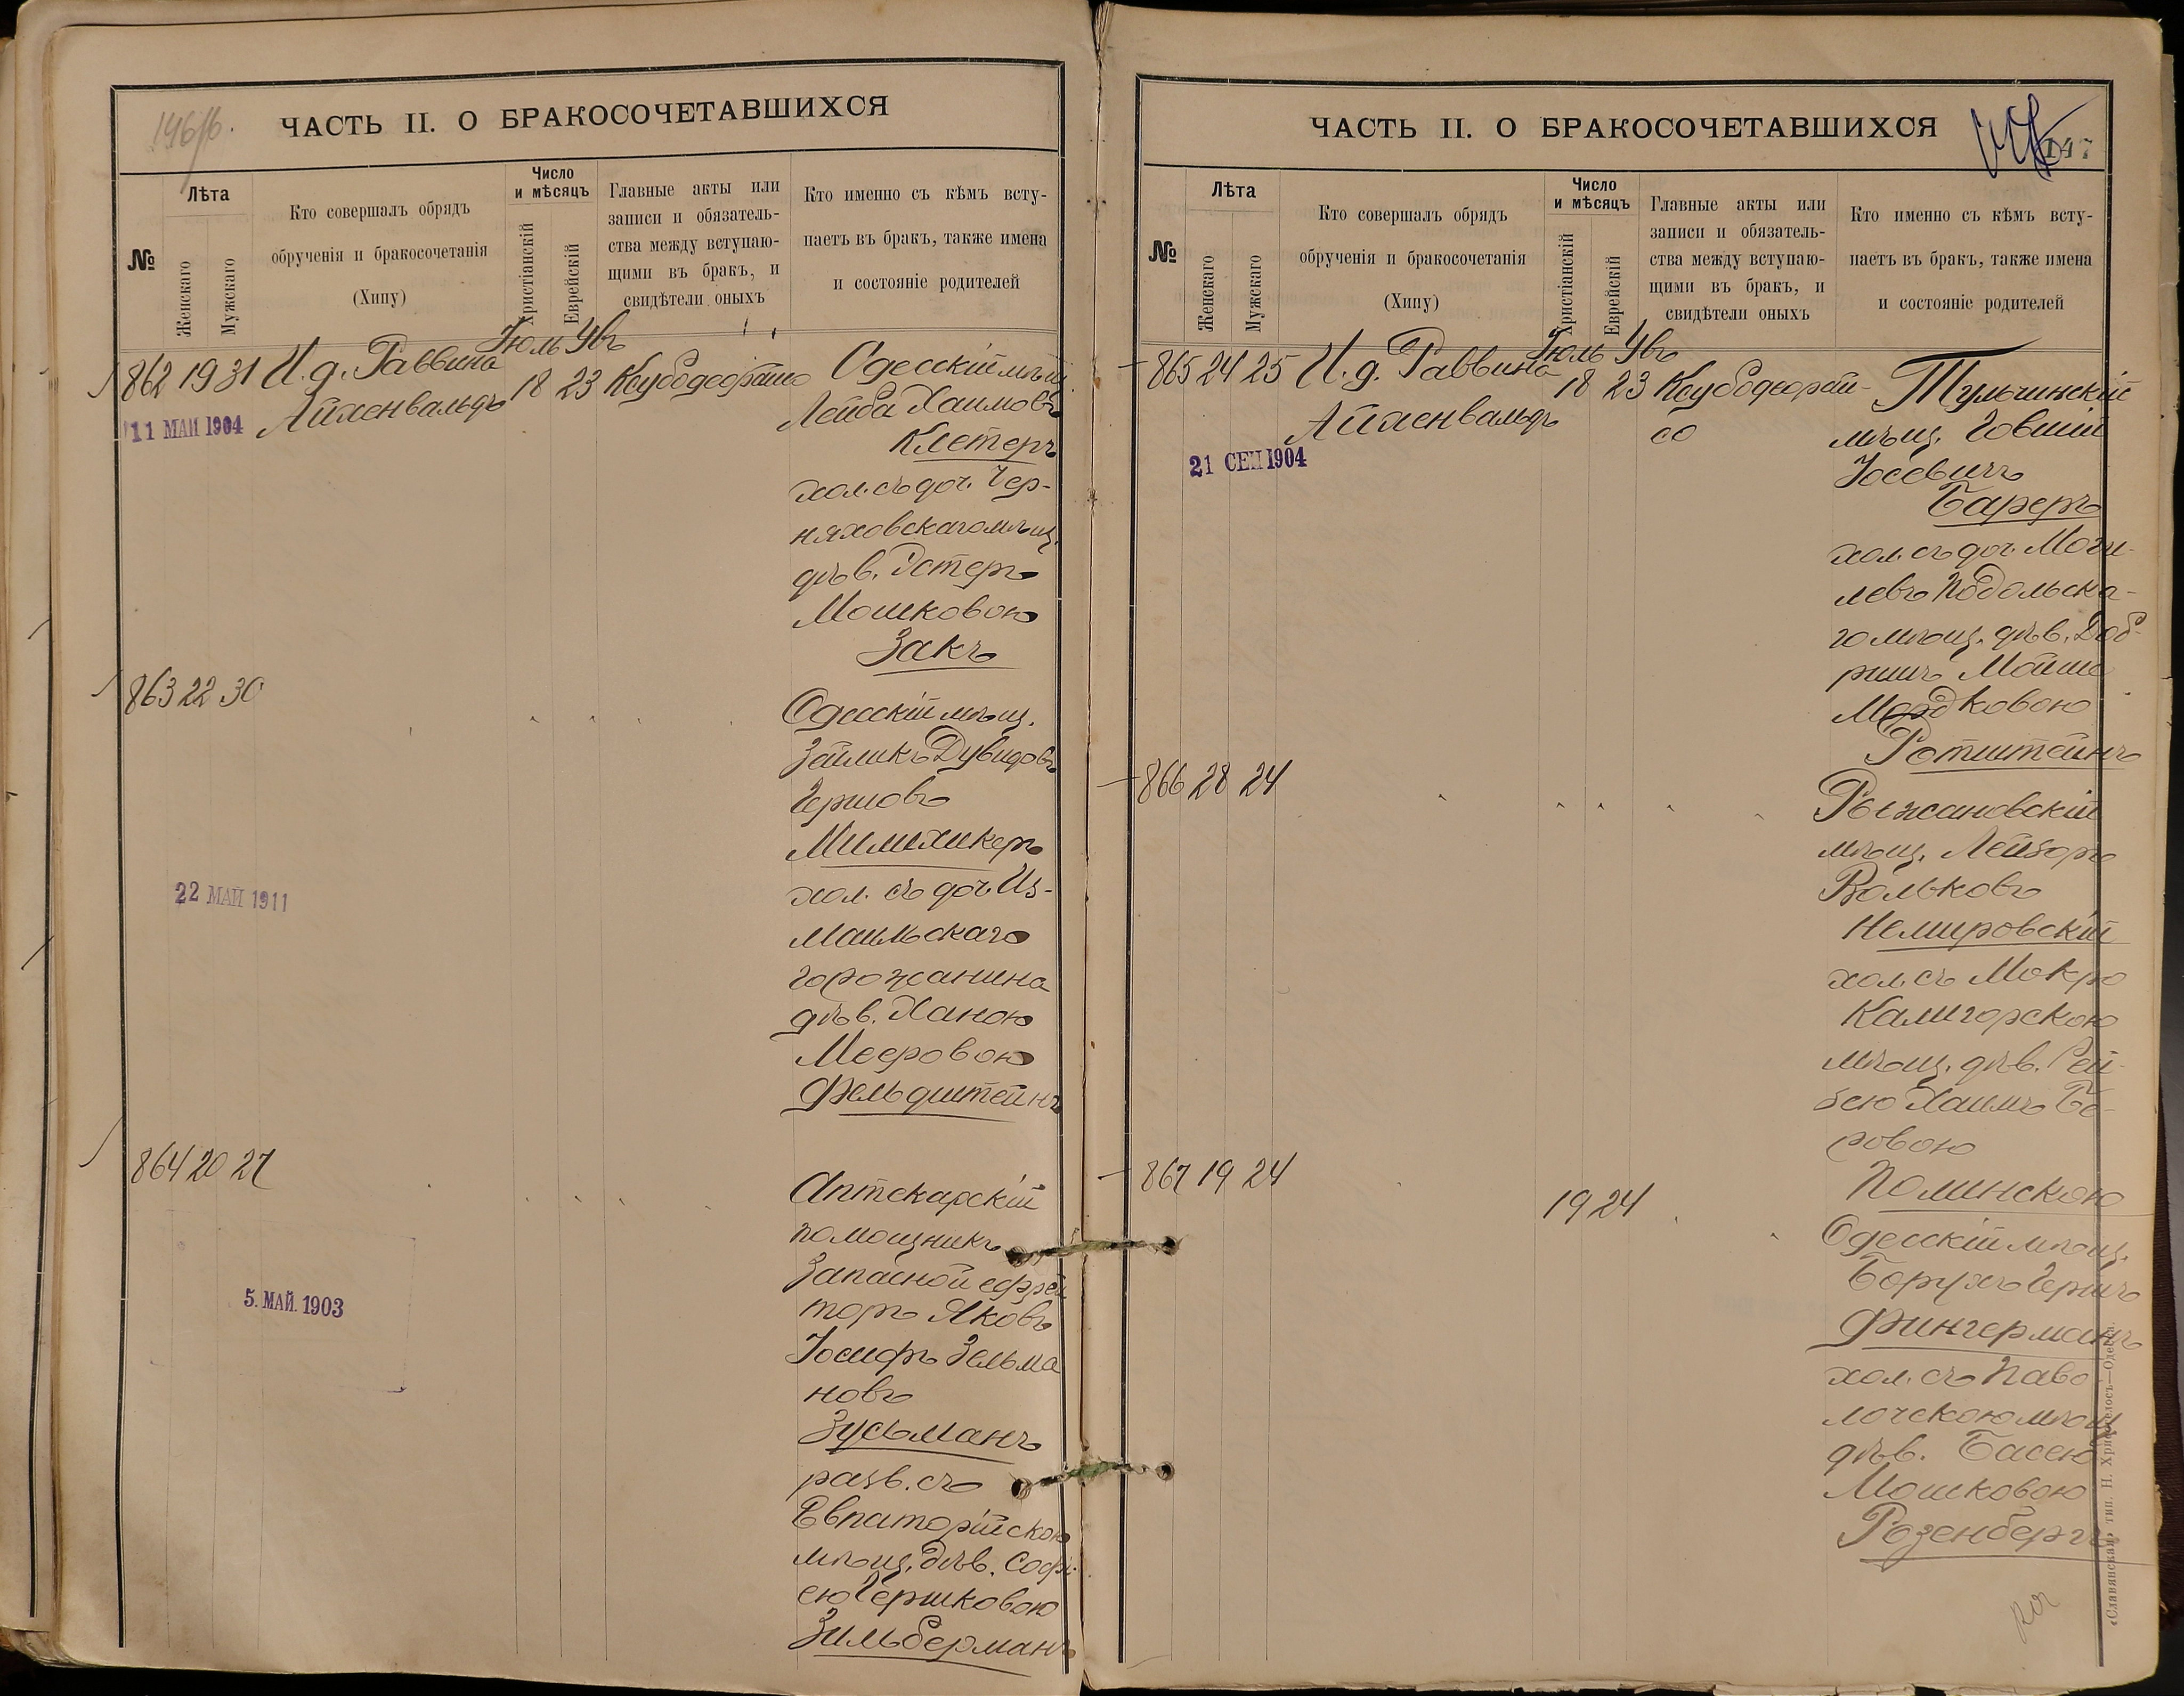 146/б.
ЧАСТЬ II. О БРАКОСОЧЕТАВШИХСЯ
№
Лѣта
Женскаго
Мужскаго
Кто совершалъ обрядъ
обрученія и бракосочетанія
(Хипу)
Число
и мѣсяцъ
Христіанскій
Еврейскій
Главные акты или
записи и обязатель-
ства между вступаю-
щими въ бракъ, и
свидѣтели оныхъ
Кто именно съ кѣмъ всту-
паетъ въ бракъ, также имена
и состояніе родителей
Іюль Увъ
862 19 31 И. д. Раввина 18 23 Ксубодеорайсо Одесскій мѣщ.
11 МАЙ 1904 Айхенвальдъ Лейба Хаимовъ
Клетеръ
хол. съ доч. Чер-
няховскаго мѣщ.
дѣв. Эстеръ
Мошковою
Закъ
863 22 30
Одесскій мѣщ.
Зейликъ Дувидовъ
Гершовъ
Милихикеръ
22 МАЙ 1911
хол. съ доч. Из-
маильскаго
горожанина
дѣв. Ханою
Мееровою
Фельдштейнъ
864 20 27
Аптекарскій
помощникъ
Запасной ефрей
торъ Яковъ
5. МАЙ. 1903
Іосифъ Зельма
новъ
Зусьманъ
разв. съ
Евпаторійскою
мѣщ. дѣв. Софі-
ею Гершковою
Зильберманъ
ЧАСТЬ II. О БРАКОСОЧЕТАВШИХСЯ
147
№
Лѣта
Женскаго
Мужскаго
Кто совершалъ обрядъ
обрученія и бракосочетанія
(Хипу)
Число
и мѣсяцъ
Христіанскій
Еврейскій
Главные акты или
записи и обязатель-
ства между вступаю-
щими въ бракъ, и
свидѣтели оныхъ
Кто именно съ кѣмъ всту-
паетъ въ бракъ, также имена
и состояніе родителей
Іюль Увъ
865 24 25 И. д. Раввина 18 23 Ксубодеорай- Тульчинскій
Айхенвальдъ со мѣщ. Говшій
21 СЕН 1904
Іосевичъ
Бареръ
хол. съ доч. Моги-
левъ Подольска-
го мѣщ. дѣв. Доб-
ришъ Мойше
Мордковою
Ротштейнъ
866 28 24
Рыжановскій
мѣщ. Лейзоръ
Вольковъ
Немировскій
хол. съ Мокро
Калигорскою
мѣщ. дѣв. Рей-
зею Хаимъ Бе-
ровою
Полинскою
867 19 24
19 24
Одесскій мѣщ.
Борухъ Гершъ
Фингерманъ
хол. съ Паво
лочскою мѣщ
дѣв. Басею
Мошковою
Розенбергъ
«Славянская» тип. Н. Хрисогелосъ—Одесса.